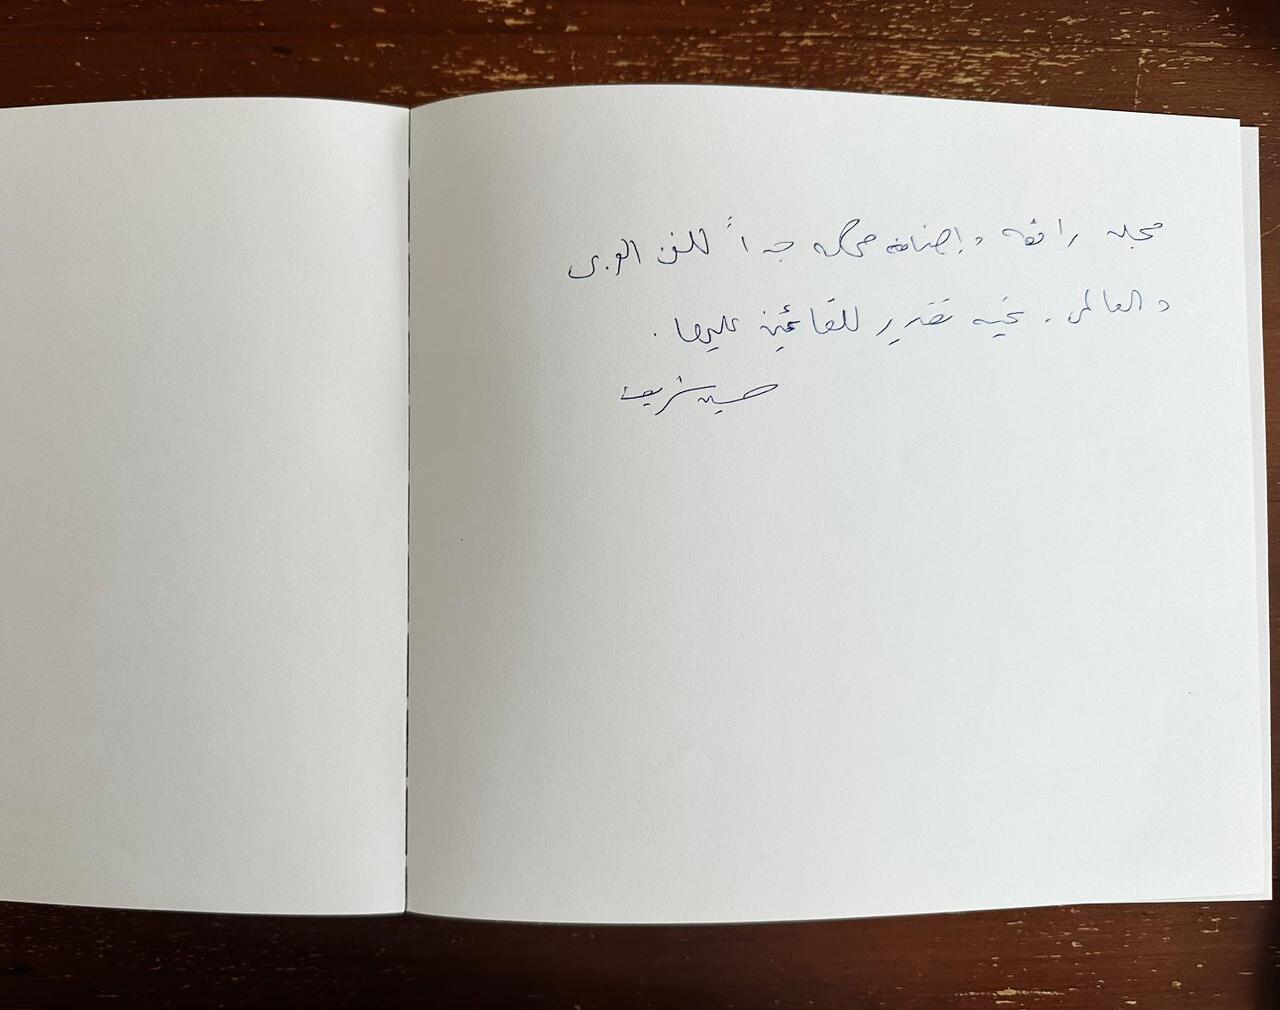 مجله رائعه وإضافه مهمه جداً للفن العربى
والعالمى. تحيه تقدير للقائمين عليها.
حسين شريف